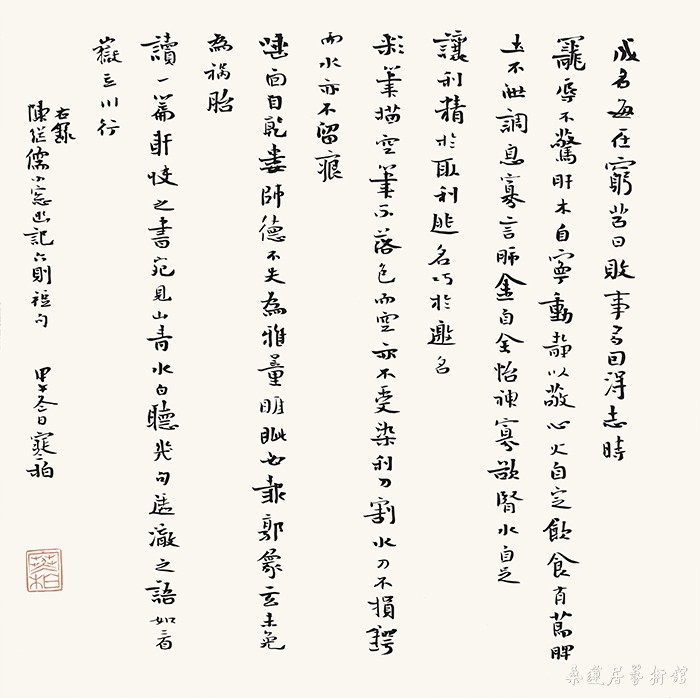 成名每在窮苦日敗事多因得志時
寵辱不驚肝木自寧動靜以敬心火自定飲食有節脾
土不泄調息寡言肺金自全怡神寡欲腎水自足
讓利精於取利逃名巧於邀名
彩筆描空筆不落色而空亦不受染利刀割水刀不損鍔
而水亦不留痕
唾面自乾婁師德不失為雅量睚眥必報郭象玄未免
為禍胎
讀一篇軒快之書宛見山青水白聽幾句透澈之語如看
嶽立川行
右錄
陳繼儒小窗幽記六則短句 甲午冬日寒柏
桑蓮居藝術館